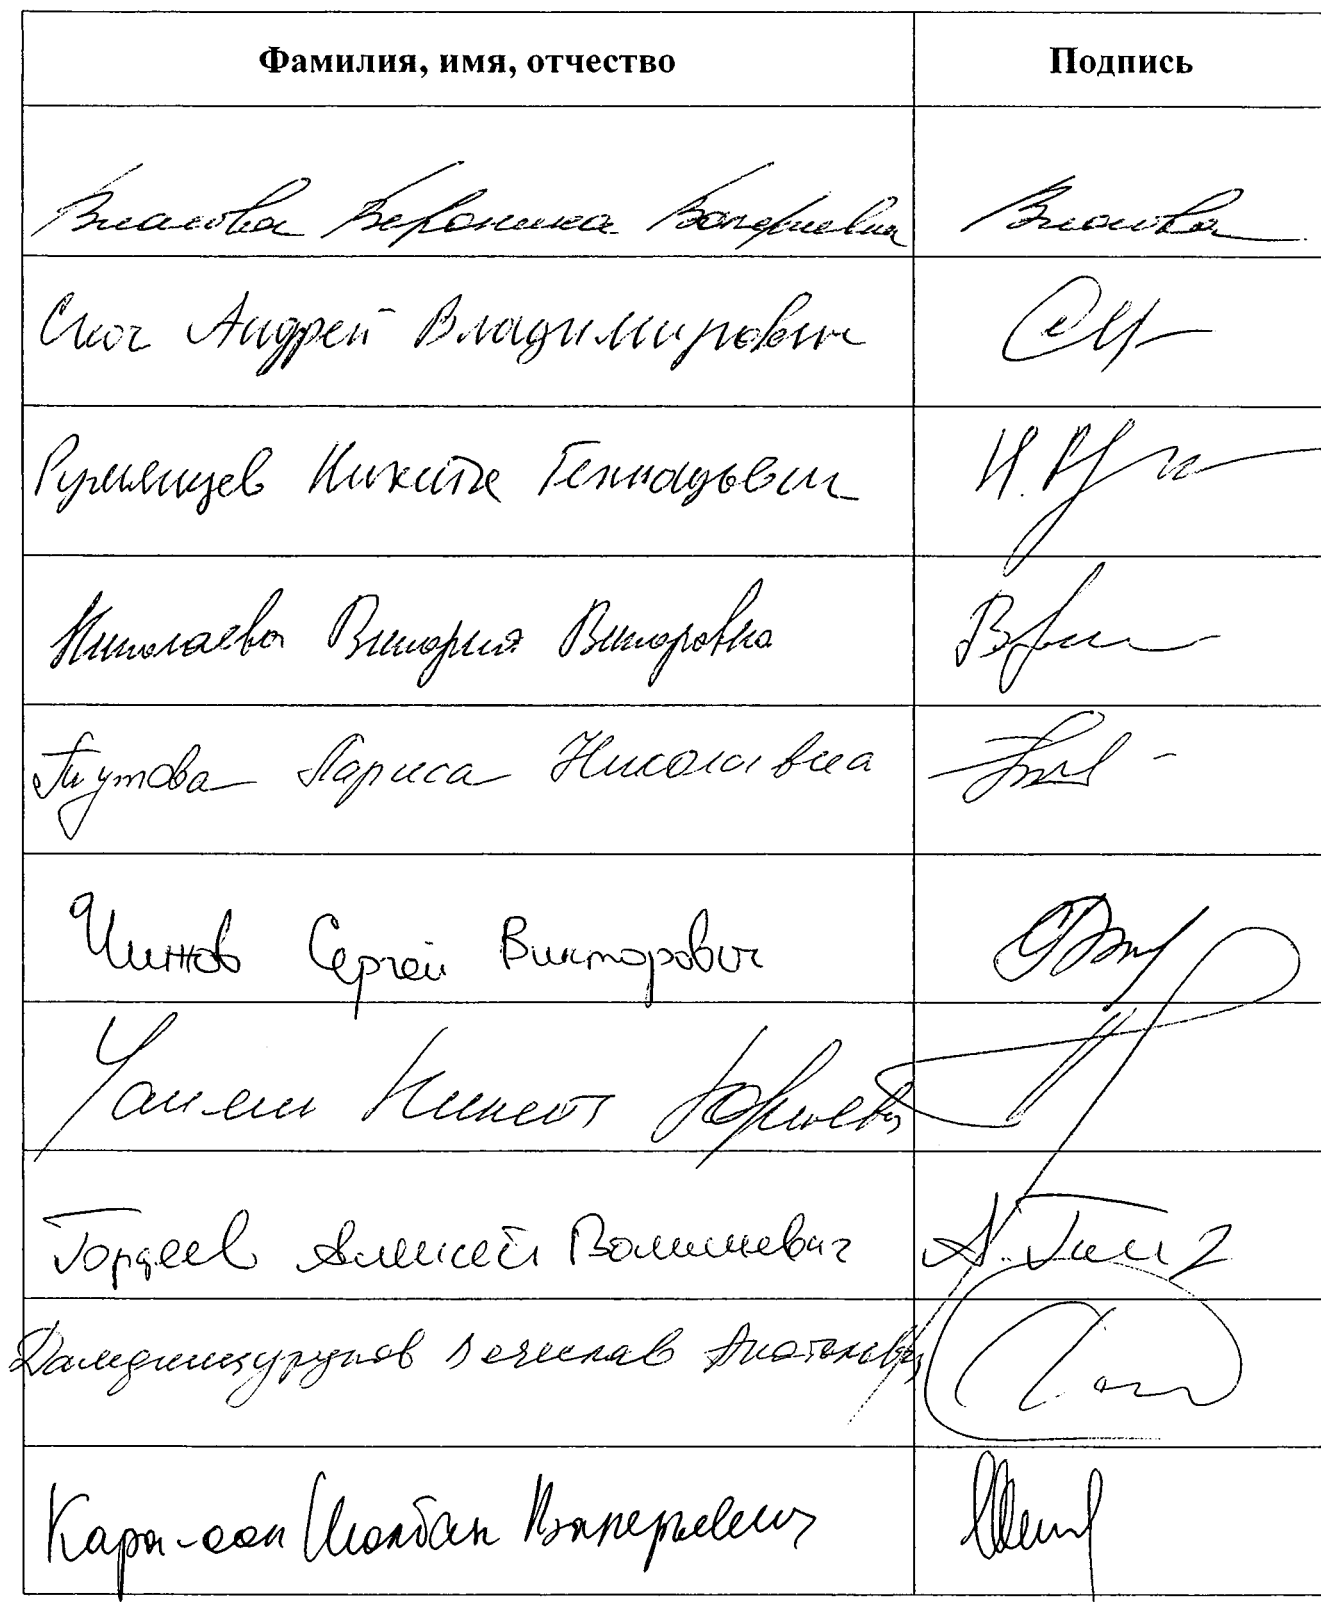 Фамилия, имя, отчество Подпись
Власова Вероника Валерьевна Власова
Скоч Андрей Владимирович
Румянцев Никита Геннадьевич
Николаева Виктория Викторовна
Тутова Лариса Николаевна
Чижов Сергей Викторович
Чаплин Никита Юрьевич
Гордеев Алексей Васильевич
Дамдинцурунов Вячеслав Анатольевич
Кара-оол Шолбан Валерьевич